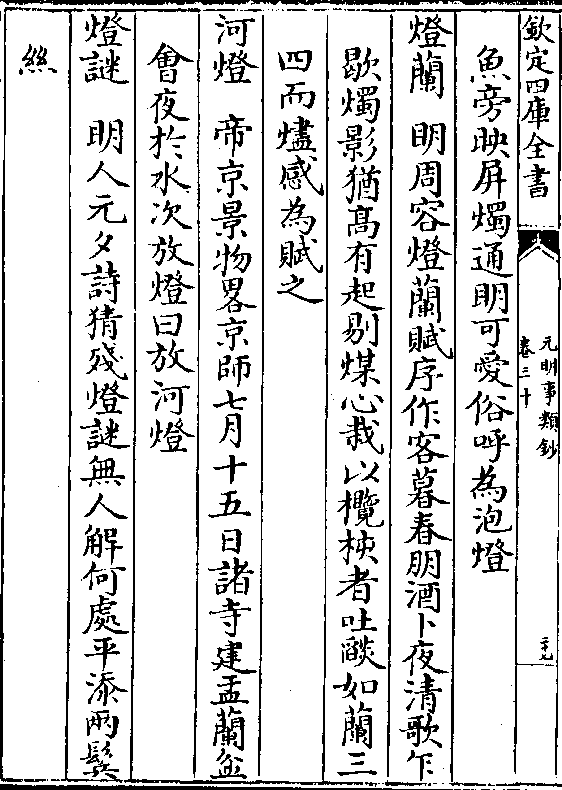 欽定四庫全書
元明事類鈔
卷三十
魚旁映屏燭通明可愛俗呼為泡燈
燈蘭 明周容燈蘭賦序作客暮春朋酒卜夜清歌乍
歇燭影猶髙有起剔煤心栽以欖核者吐燄如蘭三
四而燼感為賦之
河燈 帝京景物畧京師七月十五日諸寺建盂蘭盆
㑹夜於水次放燈曰放河燈
燈謎 明人元夕詩猜殘燈謎無人解何處平添兩鬢
絲